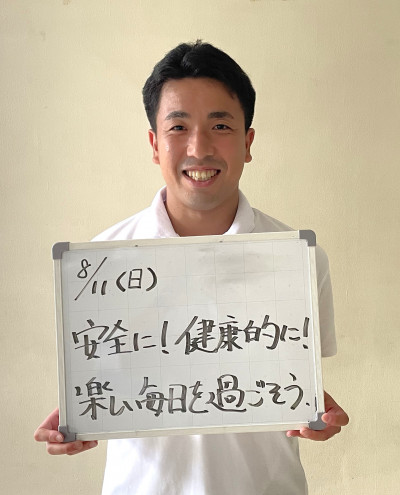 8/11(日)
安全に!健康的に!
楽しい毎日を過ごそう.